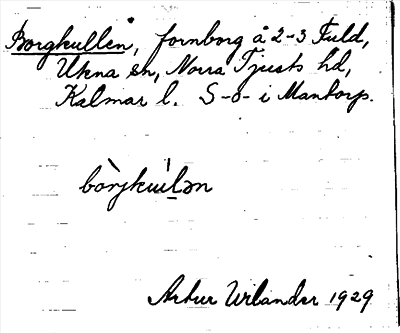 Borgkullen, fornborg å 2-3 Fuld,
Ukna sn, Norra Tjusts hd,
Kalmar l. S-o- i Mantorp.
bòrjkuíl̠ən
Artur Urlander 1929